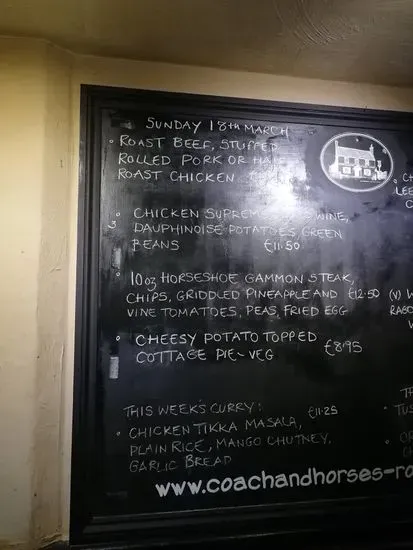 SUNDAY 18th MARCH
• ROAST BEEF, STUFFED
ROLLED PORK OR HALF
ROAST CHICKEN
• CHICKEN SUPREME WINE,
DAUPHINOISE POTATOES, GREEN
BEANS £11.50
• 10oz HORSESHOE GAMMON STEAK,
CHIPS, GRIDDLED PINEAPPLE AND £12.50
VINE TOMATOES, PEAS, FRIED EGG
• CHEESY POTATO TOPPED
COTTAGE PIE - VEG £8.95
THIS WEEK'S CURRY: £11.25
• CHICKEN TIKKA MASALA,
PLAIN RICE, MANGO CHUTNEY,
GARLIC BREAD
• C
LEE
C
(V) W
RAGO
TUS
www.coachandhorses-ro